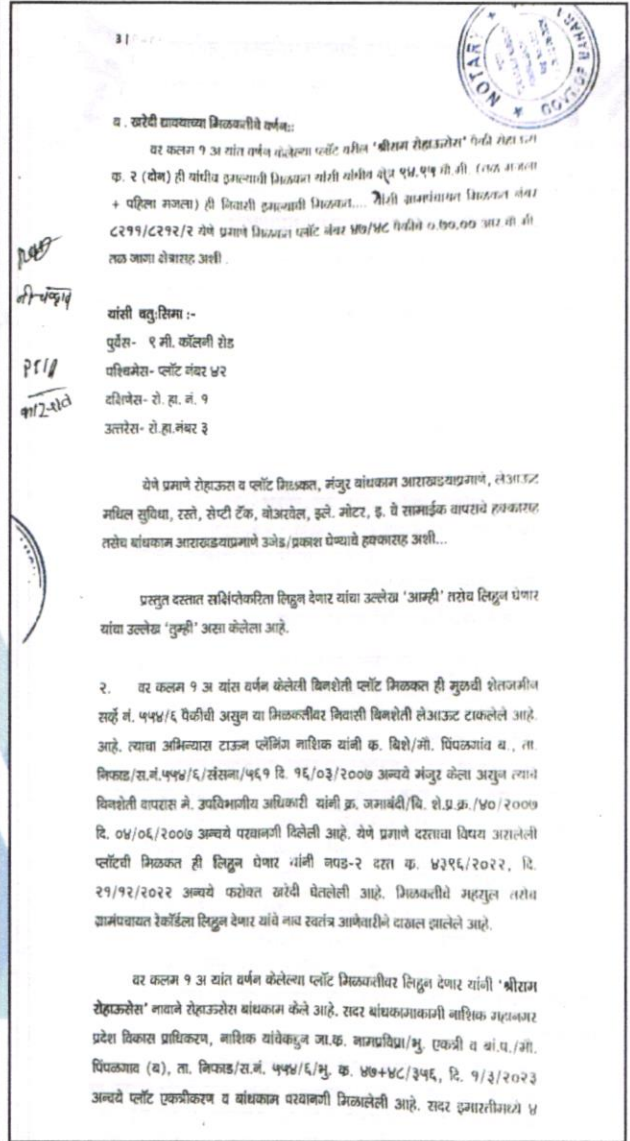 3|
NOTARY
ब . खरेदी द्यावयाच्या मिळकतीचे वर्णन::
वर कलम १ अ यांत वर्णन केलेल्या प्लॉट वरील 'श्रीराम रोहाऊसेस' पैकी रोहाऊस
क्र. २ (दोन) ही बांधीव इमल्याची मिळकत यांसी बांधीव क्षेत्र ९४.९५ चौ.मी. (तळ मजला
+ पहिला मजला) ही निवासी इमल्याची मिळकत.... यांसी ग्रामपंचायत मिळकत नंबर
८२११/८२१२/२ येणे प्रमाणे मिळकत प्लॉट नंबर ४७/४८ पैकीचे ०.७०.०० आर चौ.मी.
तळ जागा क्षेत्रासह अशी .
यांसी चतु:सिमा :-
पुर्वेस- ९ मी. कॉलनी रोड
पश्चिमेस- प्लॉट नंबर ४२
दक्षिणेस- रो. हा. नं. १
उत्तरेस- रो.हा.नंबर ३
येणे प्रमाणे रोहाऊस व प्लॉट मिळकत, मंजुर बांधकाम आराखडयाप्रमाणे, लेआऊट
मधिल सुविधा, रस्ते, सेप्टी टॅक, बोअरवेल, इले. मोटर, इ. चे सामाईक वापराचे हक्कासह
तसेच बांधकाम आराखडयाप्रमाणे उजेड/प्रकाश घेण्याचे हक्कासह अशी...
प्रस्तुत दस्तात सक्षिप्तेकरिता लिहुन देणार यांचा उल्लेख 'आम्ही' तसेच लिहुन घेणार
यांचा उल्लेख 'तुम्ही' असा केलेला आहे.
२. वर कलम १ अ यांस वर्णन केलेली बिनशेती प्लॉट मिळकत ही मुळची शेतजमीन
सर्व्हे नं. ५५४/६ पैकीची असुन या मिळकतीवर निवासी बिनशेती लेआऊट टाकलेले आहे.
आहे. त्याचा अभिन्यास टाऊन प्लॅनिंग नाशिक यांनी क्र. बिशे/मौ. पिंपळगांव ब., ता.
निफाड/स.नं.५५४/६/संसना/५६१ दि. १६/०३/२००७ अन्वये मंजुर केला असुन त्याचे
बिनशेती वापरास मे. उपविभागीय अधिकारी यांनी क्र. जमाबंदी/बि. शे.प्र.क्र./४०/२००७
दि. ०४/०६/२००७ अन्वये परवानगी दिलेली आहे. येणे प्रमाणे दस्ताचा विषय असलेली
प्लॉटची मिळकत ही लिहुन घेणार यांनी नपड-२ दस्त क्र. ४३९६/२०२२, दि.
२१/१२/२०२२ अन्वये फरोक्त खरेदी घेतलेली आहे. मिळकतीचे महसुल तसेच
ग्रामंपचायत रेकॉर्डला लिहुन देणार यांचे नाव स्वतंत्र आणेवारीने दाखल झालेले आहे.
वर कलम १ अ यांत वर्णन केलेल्या प्लॉट मिळकतीवर लिहुन देणार यांनी 'श्रीराम
रोहाऊसेस' नावाने रोहाऊसेस बांधकाम केले आहे. सदर बांधकामाकामी नाशिक महानगर
प्रदेश विकास प्राधिकरण, नाशिक यांचेकडुन जा.क्र. नामप्रविप्रा/भु. एकत्री व बां.प./मौ.
पिंपळगाव (ब), ता. निफाड/स.नं. ५५४/६/भु. क्र. ४७+४८/३५६, दि. १/३/२०२३
अन्वये प्लॉट एकत्रीकरण व बांधकाम परवानगी मिळालेली आहे. सदर इमारतीमध्ये ४